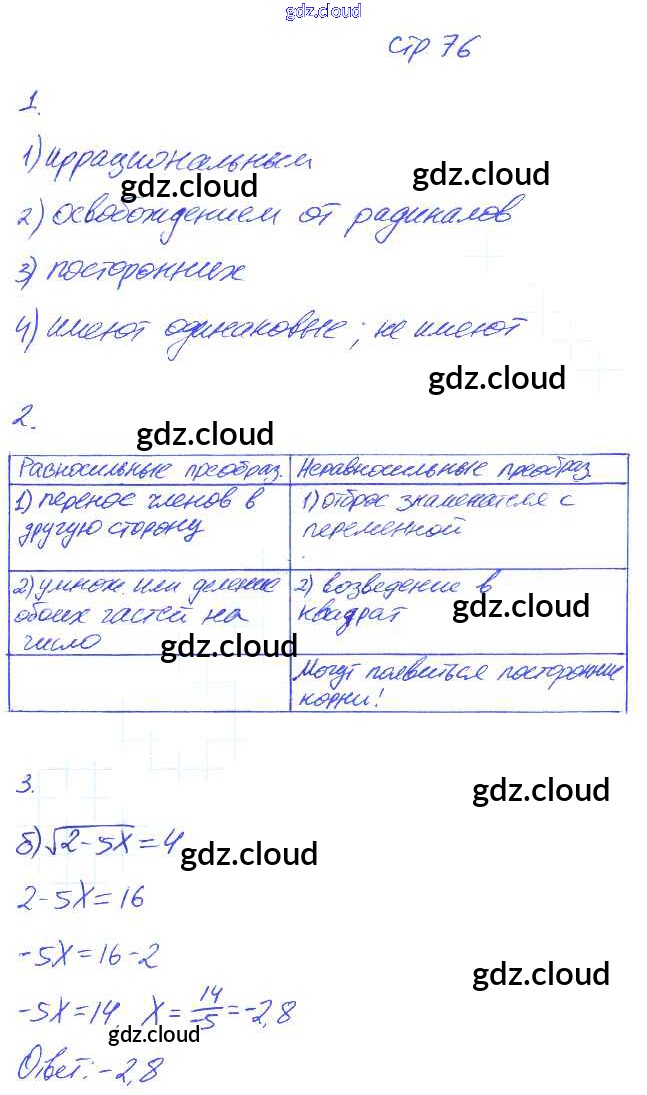 gdz.cloud
стр 76
1.
1) иррациональным
gdz.cloud
gdz.cloud
2) освобождением от радикалов
3) посторонних
4) имеют одинаковые; не имеют
gdz.cloud
2.
gdz.cloud
Равносильные преобраз. Неравносильные преобраз
1) перенос членов в
другую сторону
1) отброс знаменателя с
переменной
2) умнож. или деление
обоих частей на
число
2) возведение в
квадрат
gdz.cloud
gdz.cloud
Могут появиться посторонние
корни!
3.
gdz.cloud
б) √2-5x = 4
gdz.cloud
2-5x = 16
-5x = 16-2
gdz.cloud
-5x = 14 x = 14/-5 = -2,8
gdz.cloud
Ответ: -2,8